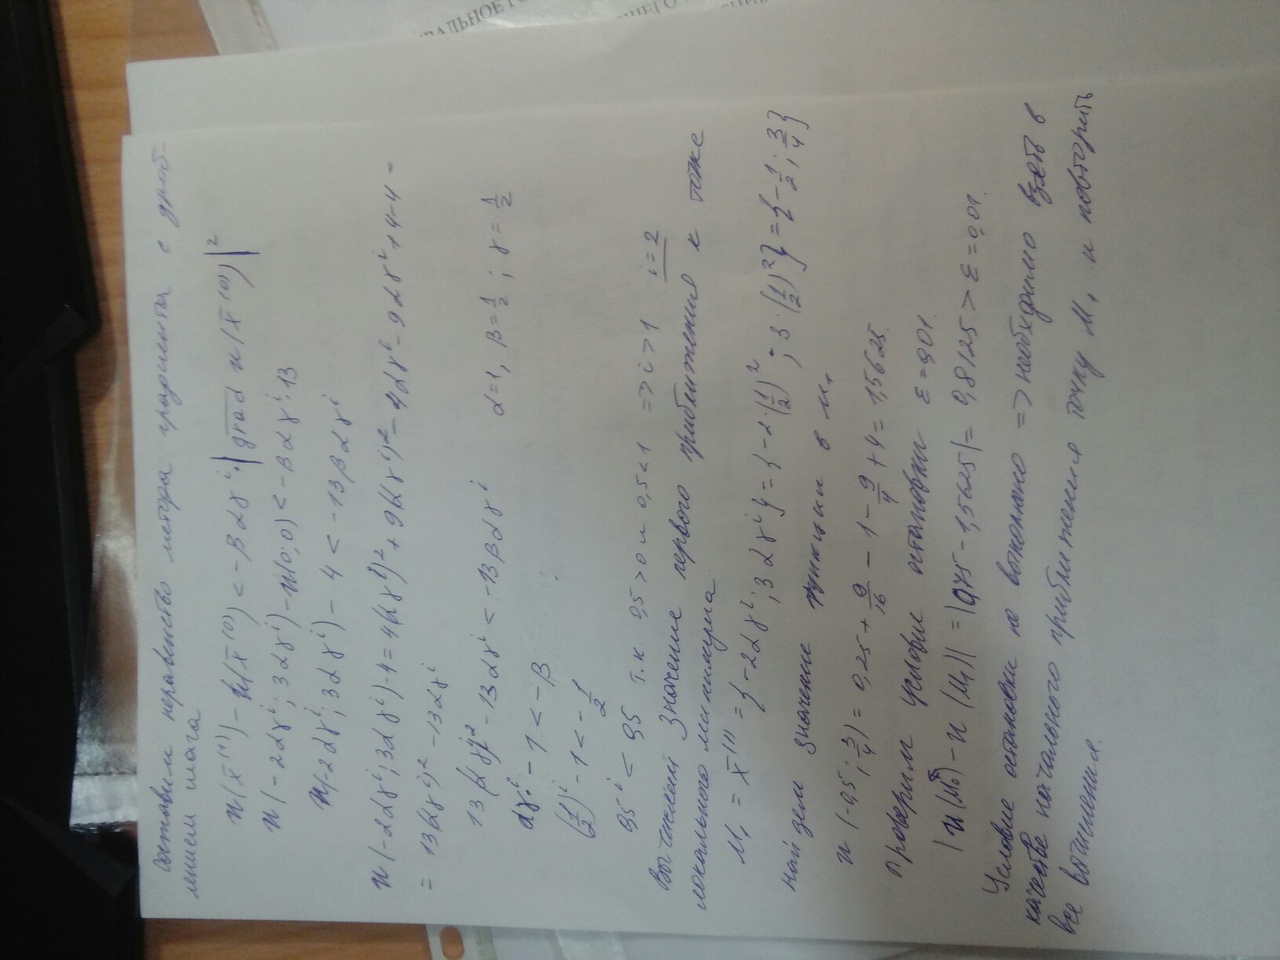 Составим неравенство метода градиента с дроб-
лением шага
u(x̄⁽¹⁾) - u(x̄⁽⁰⁾) < -βαγⁱ·|grad u(x̄⁽⁰⁾)|²
u(-2αγⁱ; 3αγⁱ) - u(0;0) < -βαγⁱ·13
u(-2αγⁱ; 3αγⁱ) - 4 < -13βαγⁱ
u(-2αγⁱ; 3αγⁱ) - 4 = 4(αγⁱ)² + 9(αγⁱ)² - 4αγⁱ - 9αγⁱ + 4 - 4 =
= 13(αγⁱ)² - 13αγⁱ
13(αγⁱ)² - 13αγⁱ < -13βαγⁱ α=1, β=1/2; γ=1/2
αγⁱ - 1 < -β
(1/2)ⁱ - 1 < -1/2
0,5ⁱ < 0,5 т.к 0,5>0 и 0,5<1 => i>1 i=2
Вычислим значение первого приближения к точке
локального минимума
M₁ = x̄⁽¹⁾ = {-2αγⁱ; 3αγⁱ} = {-2·(1/2)²; 3·(1/2)²} = {-1/2; 3/4}
Найдем значение функции в M₁
u(-0,5; 3/4) = 0,25 + 9/16 - 1 - 9/4 + 4 = 1,5625
Проверим условие остановки ε=0,01.
|u(M₀*) - u(M₁)| = |0,75 - 1,5625| = 0,8125 > ε=0,01.
Условие остановки не выполнено => необходимо взять в
качестве начального приближения точку M₁ и повторить
все вычисления.